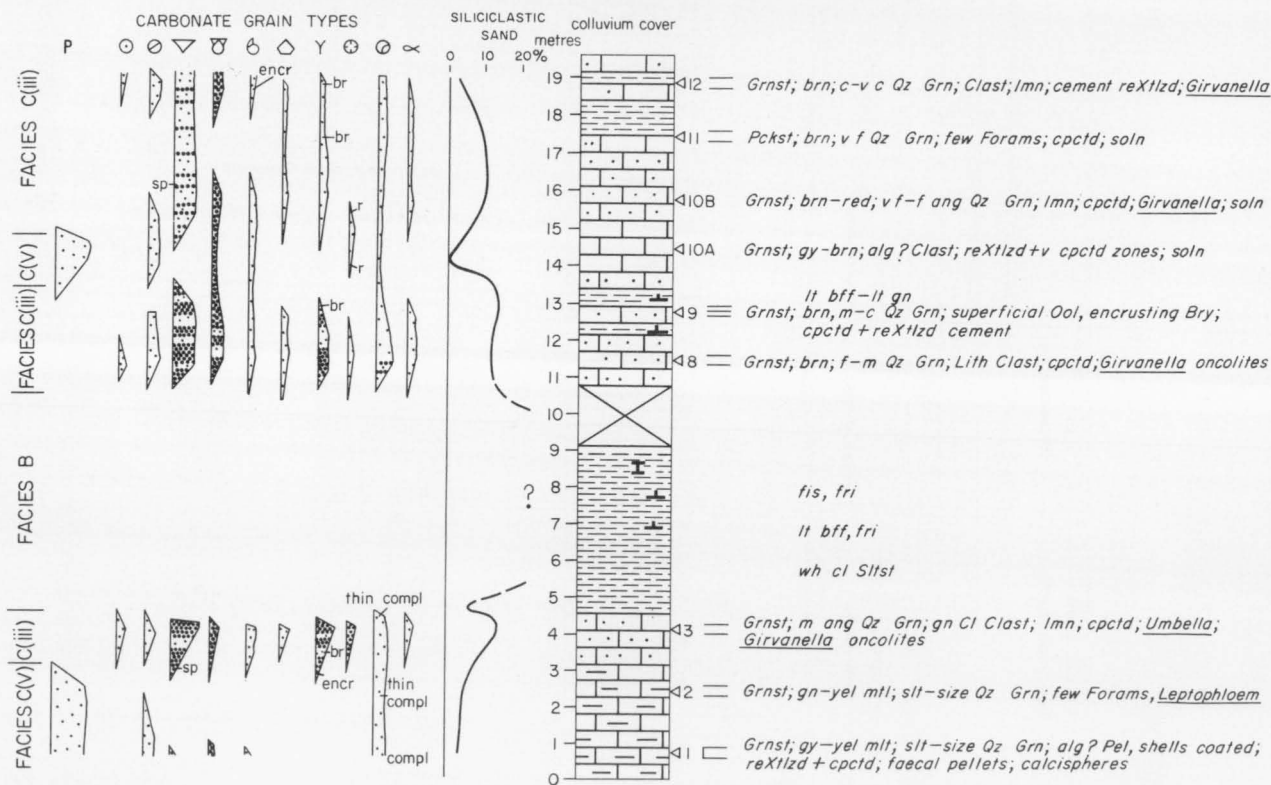 CARBONATE GRAIN TYPES
SILICICLASTIC
SAND
0 10 20%
colluvium cover
metres
P
Y
encr
br
br
sp
r
r
br
thin compl
sp
br
encr
thin
compl
compl
?
FACIES C(iii)
C(V)
FACIES C(iii)
FACIES B
C(iii)
FACIES C(V)
19
18
17
16
15
14
13
12
11
10
9
8
7
6
5
4
3
2
1
0
12 Grnst; brn; c-v c Qz Grn; Clast; lmn; cement reXtlzd; Girvanella
11 Pckst, brn; v f Qz Grn; few Forams; cpctd; soln
10B Grnst; brn-red; v f-f ang Qz Grn; lmn; cpctd; Girvanella; soln
10A Grnst; gy-brn; alg? Clast; reXtlzd+v cpctd zones; soln
lt bff-lt gn
9 Grnst; brn, m-c Qz Grn; superficial Ool, encrusting Bry;
cpctd + reXtlzd cement
8 Grnst; brn; f-m Qz Grn; Lith Clast; cpctd; Girvanella oncolites
fis, fri
lt bff, fri
wh cl Sltst
3 Grnst; m ang Qz Grn; gn Cl Clast; lmn; cpctd; Umbella;
Girvanella oncolites
2 Grnst; gn-yel mtl; slt-size Qz Grn; few Forams, Leptophloem
1 Grnst; gy-yel mlt; slt-size Qz Grn; alg? Pel, shells coated;
reXtlzd + cpctd; faecal pellets; calcispheres